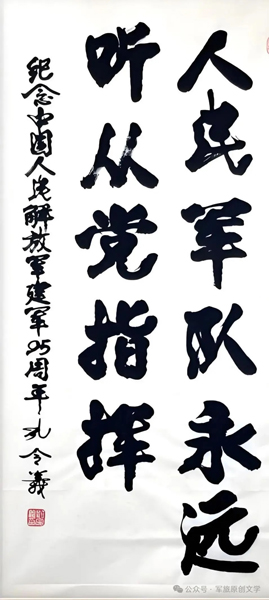 人民军队永远
听从党指挥
纪念中国人民解放军建军95周年孔令義
公众号·军旅原创文学